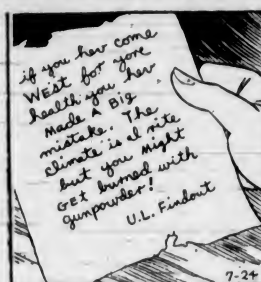 if you hev come
WEst for yore
health you hev
MADE A BIg
mistake. The
climate is al rite
but you Might
GEt burned with
gunpowder!
U.L. Findout
7-24